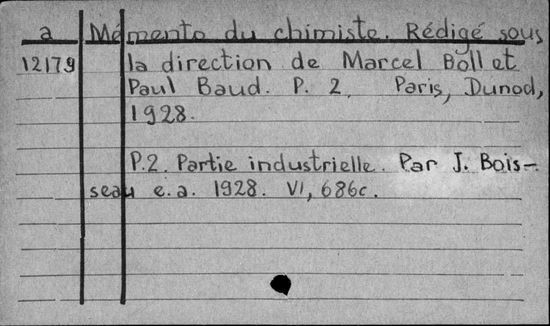 a Mémento du chimiste. Rédigé sous
12179 la direction de Marcel Boll et
Paul Baud. P. 2. Paris, Dunod,
1928.
P.2. Partie industrielle. Par J. Bois-
seau e.a. 1928. VI, 686c.